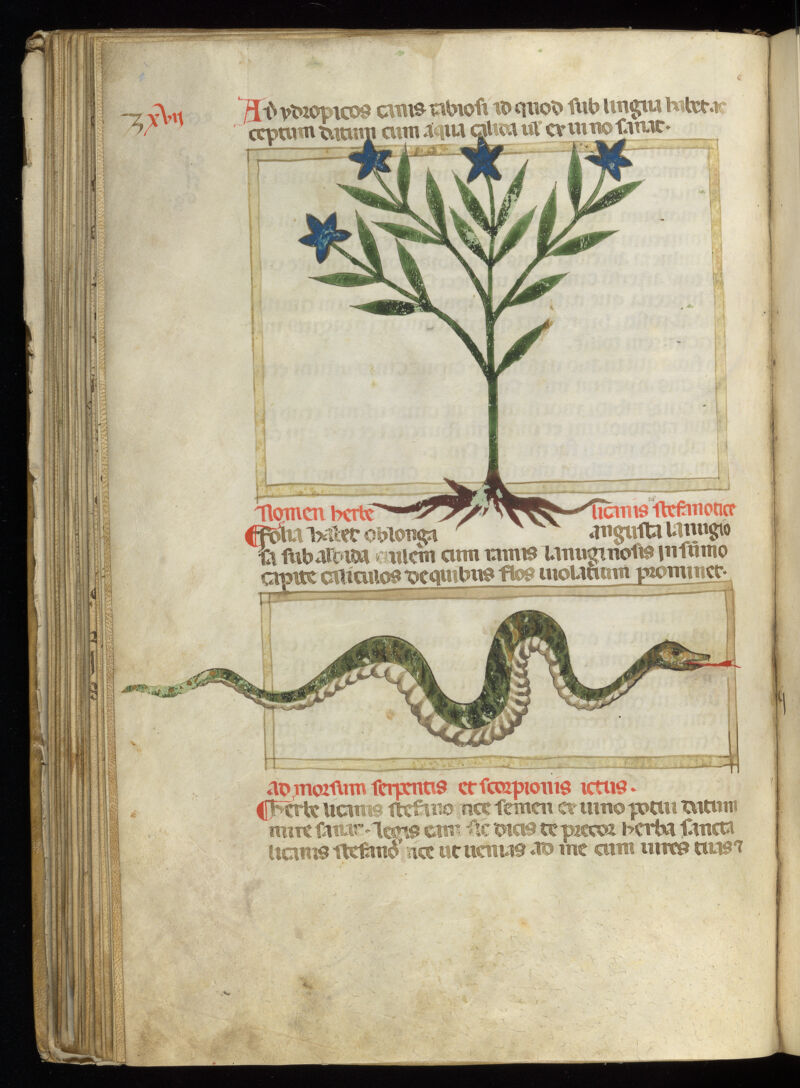 3xvii
Ad ydropicos canis rabiosi id quod sub lingua habet ac
ceptum datum cum aqua calida ul' ex uino sanat.
Nomen herbe licanis stefanotice
ffolia habet oblonga angusta lanugio
sa sub albida caulem cum ramis lanuginosis in sūmo
capite caliculos de quibus flos uiolatium prominet.
ad morsum serpentis et scorpionis ictus.
herbe licanis stefano tice semen ex uino potui datum
mire sanat. legis eam sic dicis te precor herba sancta
licanis stefano tice ut uenias ad me cum uires tuas ⁊